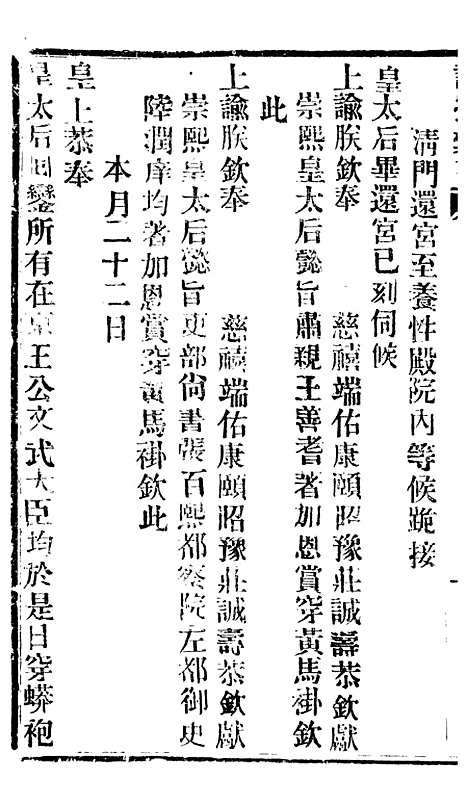 清門還宮至養性殿院內等候跪接
皇太后畢還宮巳刻伺候
上諭朕欽奉 慈禧端佑康頤昭豫莊誠壽恭欽獻
崇熙皇太后懿旨肅親王善耆著加恩賞穿黃馬褂欽
此
上諭朕欽奉 慈禧端佑康頤昭豫莊誠壽恭欽獻
崇熙皇太后懿旨吏部尙書張百熙都察院左都御史
陸潤庠均著加恩賞穿黃馬褂欽此
本月二十二日
皇上恭奉
皇太后回鑾所有在京王公文武大臣均於是日穿蟒袍